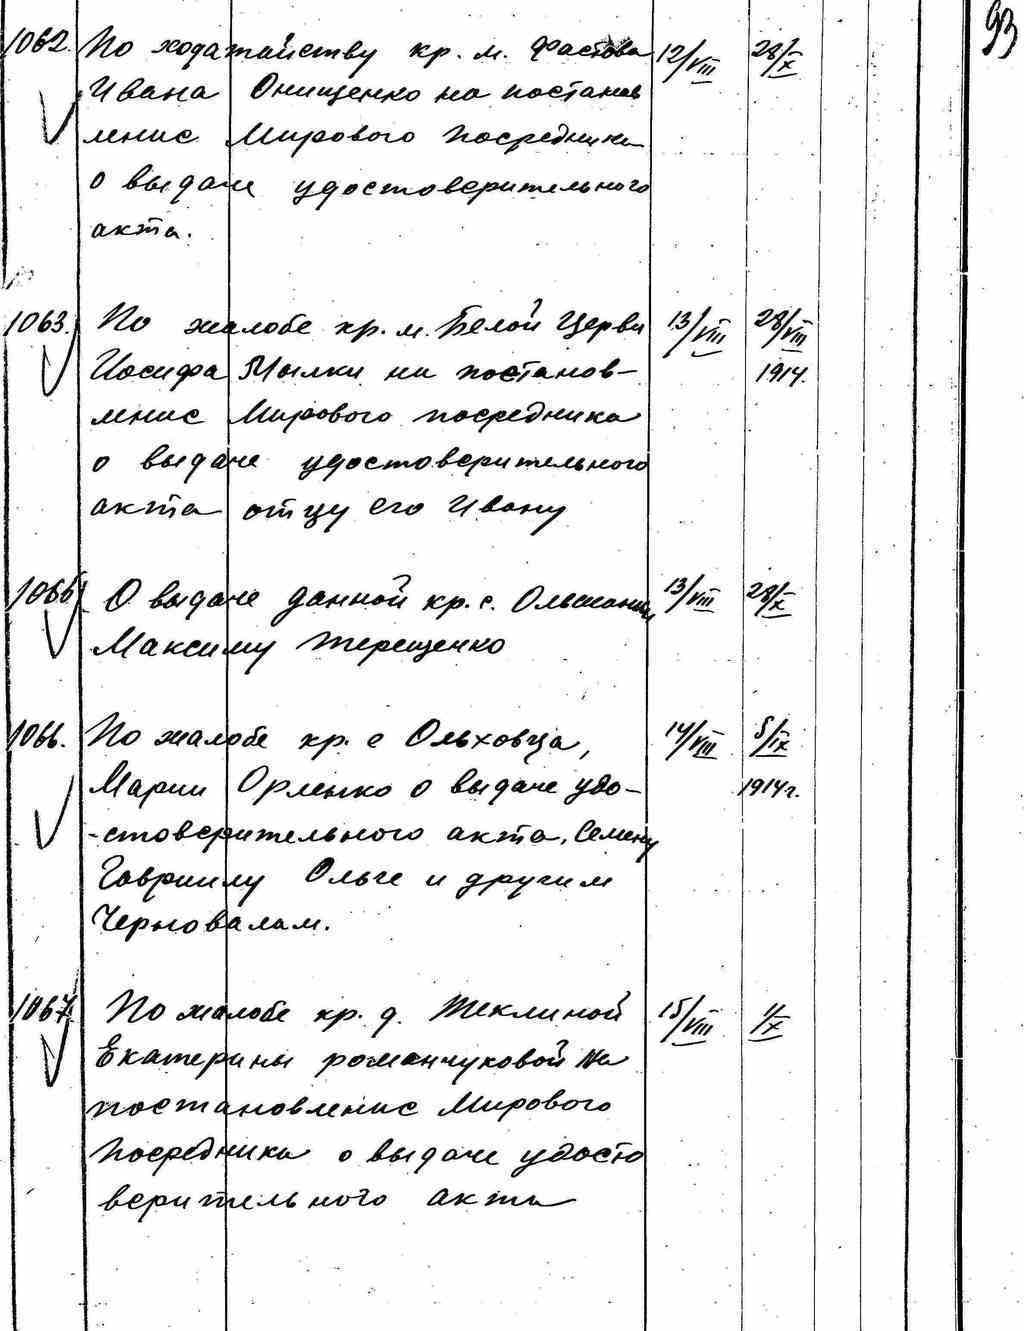 93
1062. По ходатайству кр. м. Фастова 12/VIII 28/X
Ивана Онищенко на постанов
ление Мирового посредника
о выдаче удостоверительного
акта.
1063. По жалобе кр. м. Белой Церкви 13/VIII 28/VIII
Иосифа Мылки на постанов- 1914.
ление Мирового посредника
о выдаче удостоверительного
акта отцу его Ивану
О выдаче данной кр. с. Ольшаницы 13/VIII 28/X
Максиму Терещенко
1066. По жалобе кр. с Ольховца, 14/VIII 5/IX
Марии Орленко о выдаче удо- 1914 г.
-стоверительного акта, Семену
Гавриилу Ольге и другим
Черновалам.
1067. По жалобе кр. д. Теклиной 15/VIII 1/X
Екатерины Романчуковой на
постановление Мирового
посредника о выдаче удосто
верительного акта